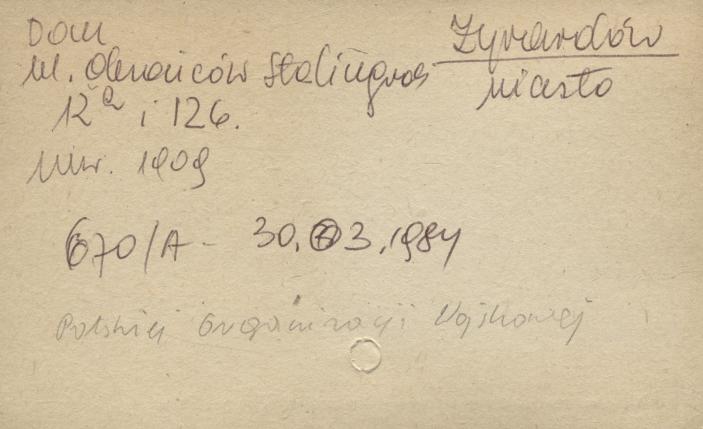 Dom
ul. Obrońców Stalingradu
Żyrardów
miasto
12a i 126.
mur. 1909
670/A - 30.03.1984
Polskiej Organizacji Wojskowej